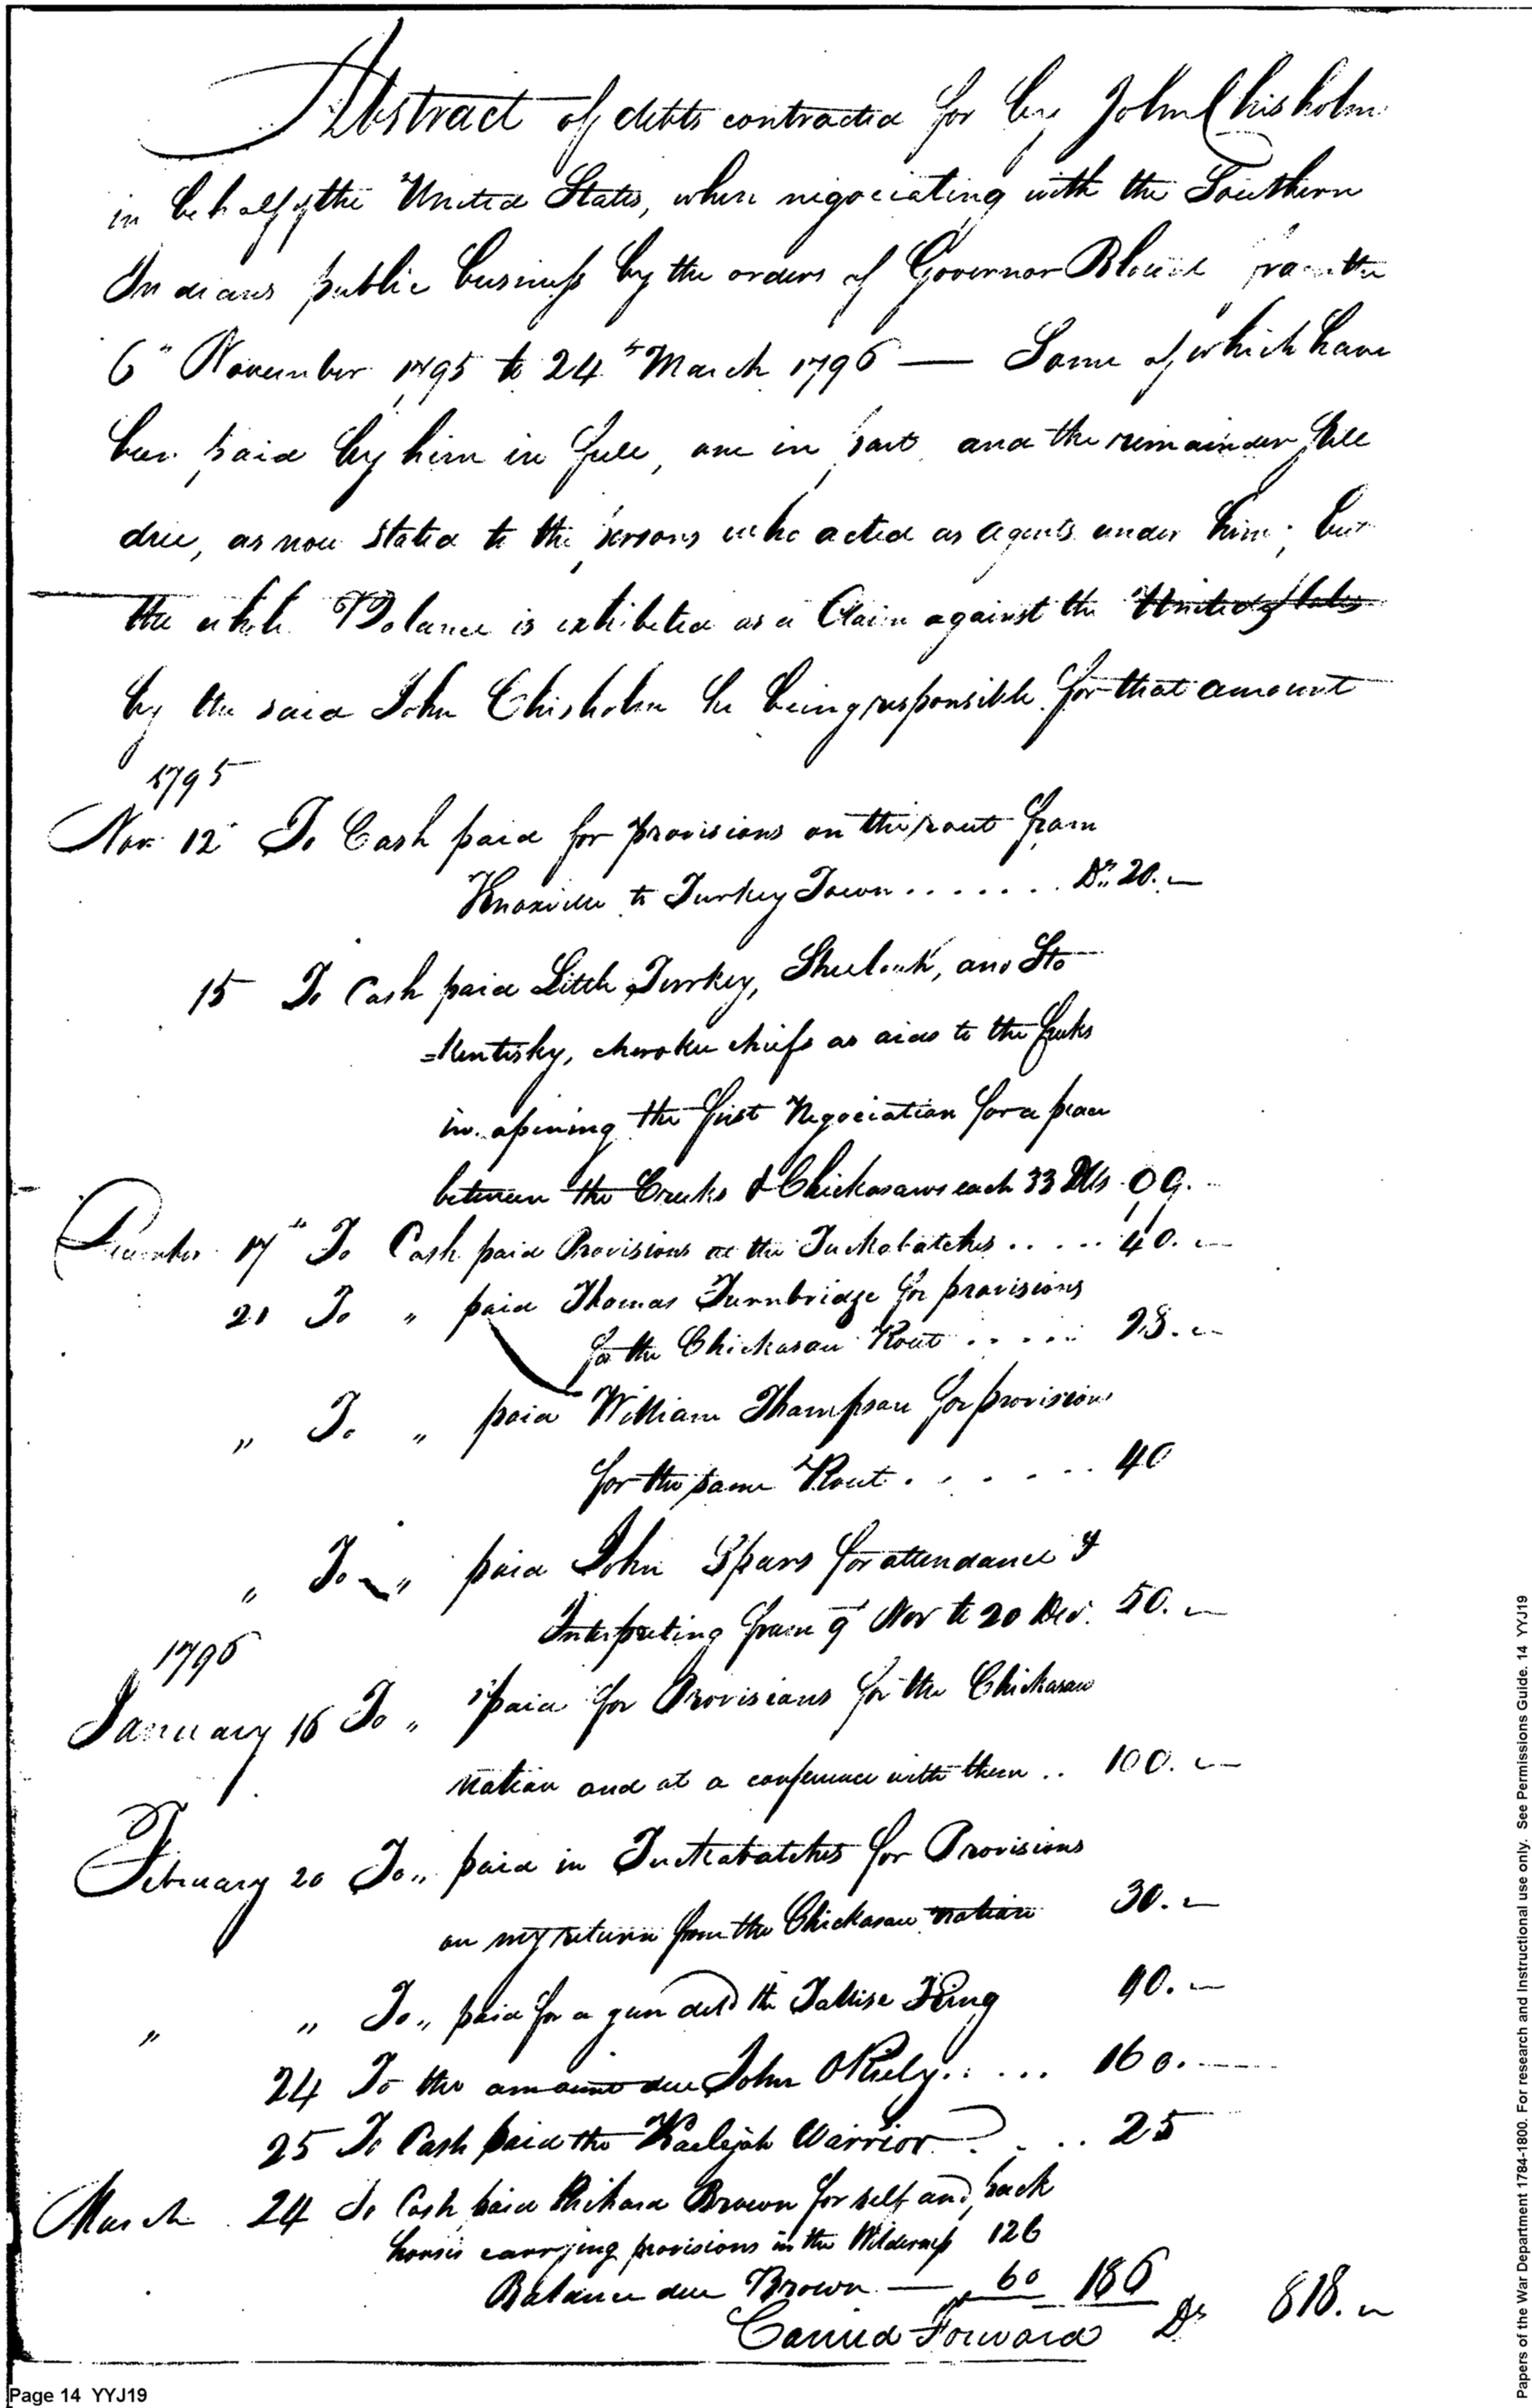 Abstract of debts contracted for by John Chisholm
in behalf of the United States, when negociating with the Southern
Indians public business by the orders of Governor Blount from the
6" November 1795 to 24th March 1796 — Some of which have
been paid by him in full, one in part and the remainder still
due, as now stated to the persons who acted as agents under him; but
the whole Balance is exhibited as a Claim against the United States
by the said John Chisholm he being responsible for that amount
1795
Nor 12 To Cash paid for provisions on the rout from
Knoxville to Turkey Town ....... Drs 20. —
15 To Cash paid Little Turkey, and
cherokee chiefs as aids to the Creeks
in opening the first Negociation for a peace
between the Creeks & Chickasaws each 33 Dlls 99. -
December 17" To Cash paid Provisions at the Tuckabatches ..... 40. —
21 To " paid Thomas Turnbridge for provisions
for the Chickasaw Rout ..... 28. —
" To " paid William Thompson for provisions
for the same Rout ...... 40
" To " paid John Spears for attendance &
Interpreting from 9 Nov to 20 Decr. 50. —
1796
January 16 To " paid for Provisions for the Chickasaw
nation and at a conference with them .. 100. —
February 20 To " paid in Tuckabatches for Provisions
on my return from the Chickasaw nation 30. —
" " To " paid for a gun deld the Tallise King 40. —
24 To the amount due John ORiely..... 160. —
25 To Cash paid the Kaelijah Warrior ... 25
March 24 To Cash paid Richard Brown for self and pack
horses carrying provisions in the Wilderness 126
Balance due Brown — 60 186
Carried Forward Ds 818. —
Page 14 YYJ19
Papers of the War Department 1784-1800. For research and Instructional use only. See Permissions Guide. 14 YYJ19